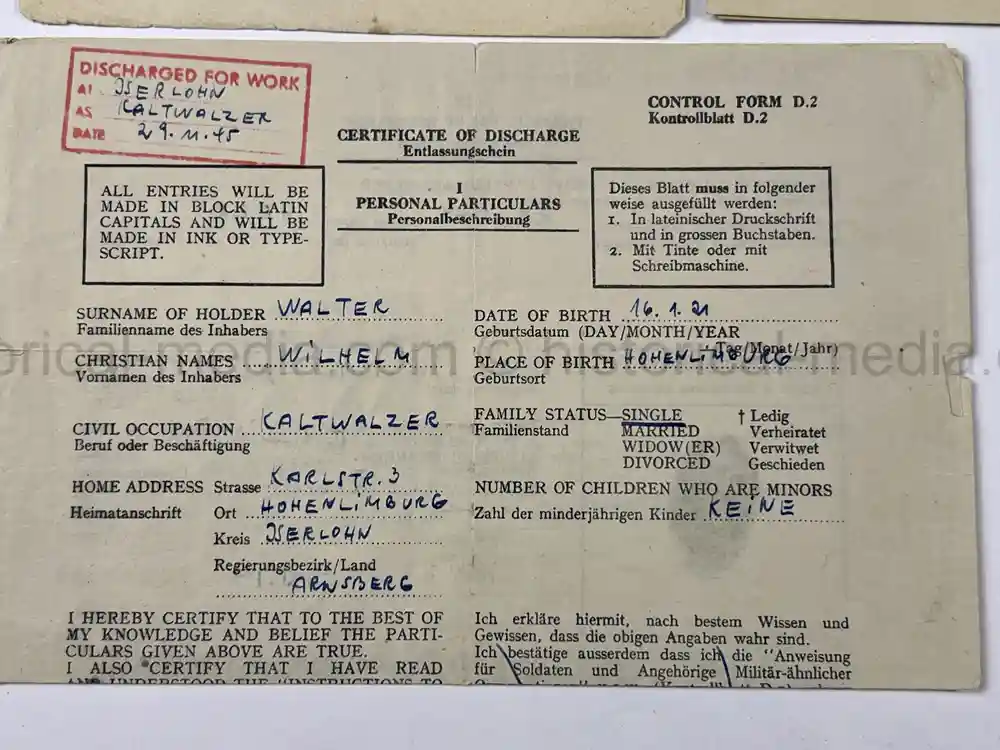 DISCHARGED FOR WORK
AT ISERLOHN
AS KALTWALZER
DATE 29.11.45
CONTROL FORM D.2
Kontrollblatt D.2
CERTIFICATE OF DISCHARGE
Entlassungschein
I
PERSONAL PARTICULARS
Personalbeschreibung
ALL ENTRIES WILL BE
MADE IN BLOCK LATIN
CAPITALS AND WILL BE
MADE IN INK OR TYPE-
SCRIPT.
Dieses Blatt muss in folgender
weise ausgefüllt werden:
1. In lateinischer Druckschrift
und in grossen Buchstaben.
2. Mit Tinte oder mit
Schreibmaschine.
SURNAME OF HOLDER WALTER
Familienname des Inhabers
CHRISTIAN NAMES WILHELM
Vornamen des Inhabers
CIVIL OCCUPATION KALTWALZER
Beruf oder Beschäftigung
HOME ADDRESS Strasse KARLSTR. 3
Heimatanschrift Ort HOHENLIMBURG
Kreis ISERLOHN
Regierungsbezirk/Land
ARNSBERG
DATE OF BIRTH 16.1.21
Geburtsdatum (DAY/MONTH/YEAR
Tag/Monat/Jahr)
PLACE OF BIRTH HOHENLIMBURG
Geburtsort
FAMILY STATUS—SINGLE † Ledig
Familienstand MARRIED Verheiratet
WIDOW(ER) Verwitwet
DIVORCED Geschieden
NUMBER OF CHILDREN WHO ARE MINORS
Zahl der minderjährigen Kinder KEINE
I HEREBY CERTIFY THAT TO THE BEST OF
MY KNOWLEDGE AND BELIEF THE PARTI-
CULARS GIVEN ABOVE ARE TRUE.
I ALSO CERTIFY THAT I HAVE READ
AND UNDERSTOOD THE "INSTRUCTIONS TO
Ich erkläre hiermit, nach bestem Wissen und
Gewissen, dass die obigen Angaben wahr sind.
Ich bestätige ausserdem dass ich die "Anweisung
für Soldaten und Angehörige Militär-ähnlicher
historical-media.com © historical-media.com